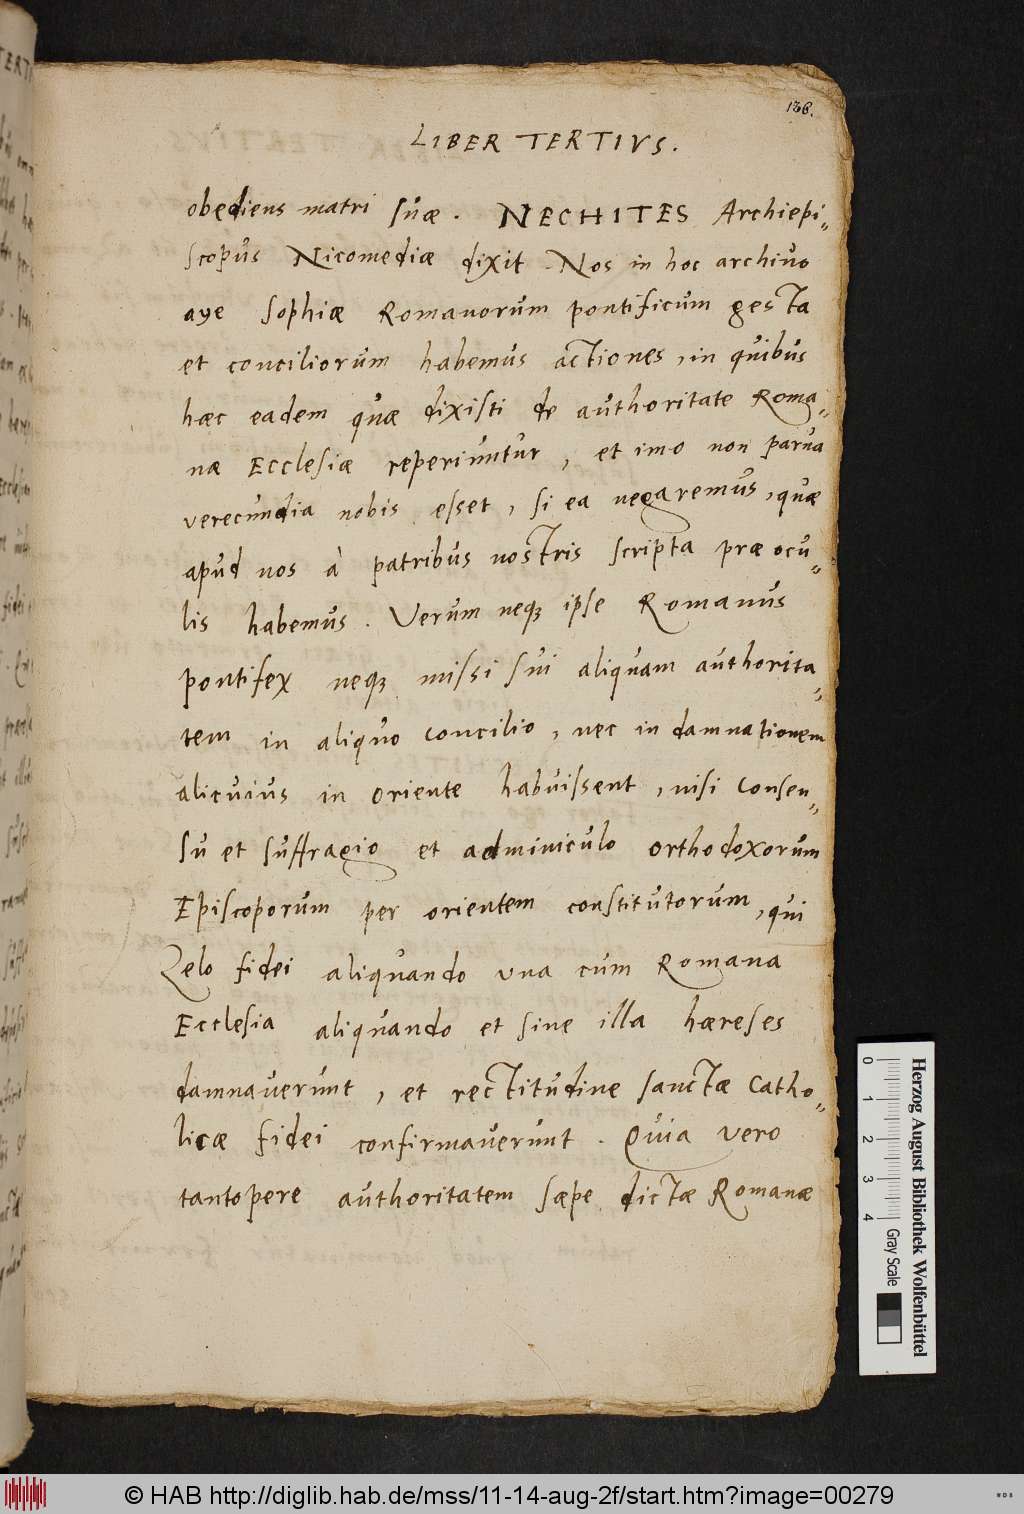 138.
LIBER TERTIVS.
obediens matri suæ. NECHITES Archiepi„
scopus Nicomediæ dixit. Nos in hoc archivo
aye sophiæ Romanorum pontificum gesta
et conciliorum habemus actiones, in quibus
hæc eadem quæ dixisti de authoritate Roma„
næ Ecclesiæ reperiuntur, et imo non parva
verecundia nobis esset, si ea negaremus, quæ
apud nos à patribus nostris scripta præ ocu„
lis habemus. Verum neqꝫ ipse Romanus
pontifex neqꝫ missi sui aliquam authorita„
tem in aliquo concilio, nec in damnationem
alicuius in oriente habuissent, nisi Consen„
su et suffragio et adminiculo orthodoxorum
Episcoporum per orientem constitutorum, qui
Zelo fidei aliquando una cum Romana
Ecclesia aliquando et sine illa hæreses
damnaverunt, et rectitudine sanctæ Catho„
licæ fidei confirmaverunt. Quia vero
tantopere authoritatem sæpe dictæ Romanæ
Herzog August Bibliothek Wolfenbüttel
0 1 2 3 4 Gray Scale
© HAB http://diglib.hab.de/mss/11-14-aug-2f/start.htm?image=00279